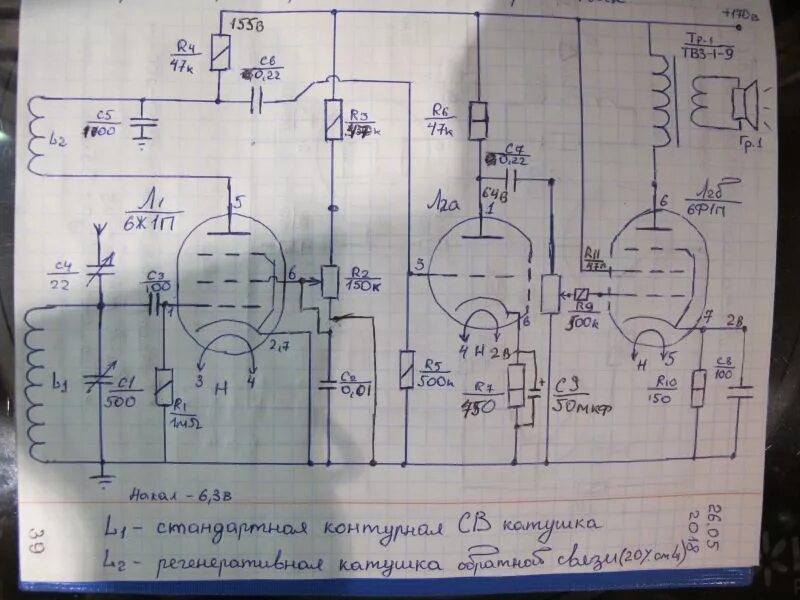 +170в
155В
R4
47к
C6
0,22
Тр.1
ТВЗ-1-9
Гр.1
C5
100
L2
R3
R6
47к
C7
0,22
64В
Л1
6Ж1П
5
Л2а
1
Л2б
6Ф1П
6
C4
22
C3
100
1
6
R2
150к
3
R11
47к
R9
500к
7
2В
2,7
3
Н
4
L1
C1
500
R1
1мΩ
C2
0,01
R5
500к
4
Н
2В
6
R7
750
+
C9
50мкф
Н
5
R10
150
C8
100
Накал - 6,3в
L1 - стандартная контурная СВ катушка
L2 - регенеративная катушка обратной связи (20% от L1)
26.05
2018
39